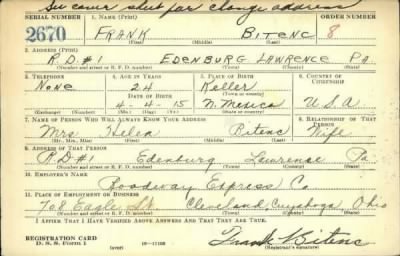 See cover sheet for change address
SERIAL NUMBER 1. NAME (Print) ORDER NUMBER
2670 FRANK BITENC 8
(First) (Middle) (Last)
2. ADDRESS (Print)
R.D.#1 EDENBURG LAWRENCE PA.
(Number and street or R. F. D. number) (Town) (County) (State)
3. TELEPHONE 4. AGE IN YEARS 5. PLACE OF BIRTH 6. COUNTRY OF CITIZENSHIP
None 24 Keller
DATE OF BIRTH (Town or county)
4-4-15 N. Mexico U.S.A.
(Exchange) (Number) (Mo.) (Day) (Yr.) (State or country)
7. NAME OF PERSON WHO WILL ALWAYS KNOW YOUR ADDRESS 8. RELATIONSHIP OF THAT PERSON
Mrs Helen Bitenc Wife
(Mr., Mrs., Miss) (First) (Middle) (Last)
9. ADDRESS OF THAT PERSON
R.D#1 Edenburg Lawrence Pa
(Number and street or R. F. D. number) (Town) (County) (State)
10. EMPLOYER'S NAME
Roadway Express Co
11. PLACE OF EMPLOYMENT OR BUSINESS
708 Eagle St. Cleveland, Cuyahoga Ohio
(Number and street or R. F. D. number) (Town) (County) (State)
I AFFIRM THAT I HAVE VERIFIED ABOVE ANSWERS AND THAT THEY ARE TRUE.
REGISTRATION CARD
D. S. S. Form 1 (over) Frank Bitenc
(Registrant's signature)